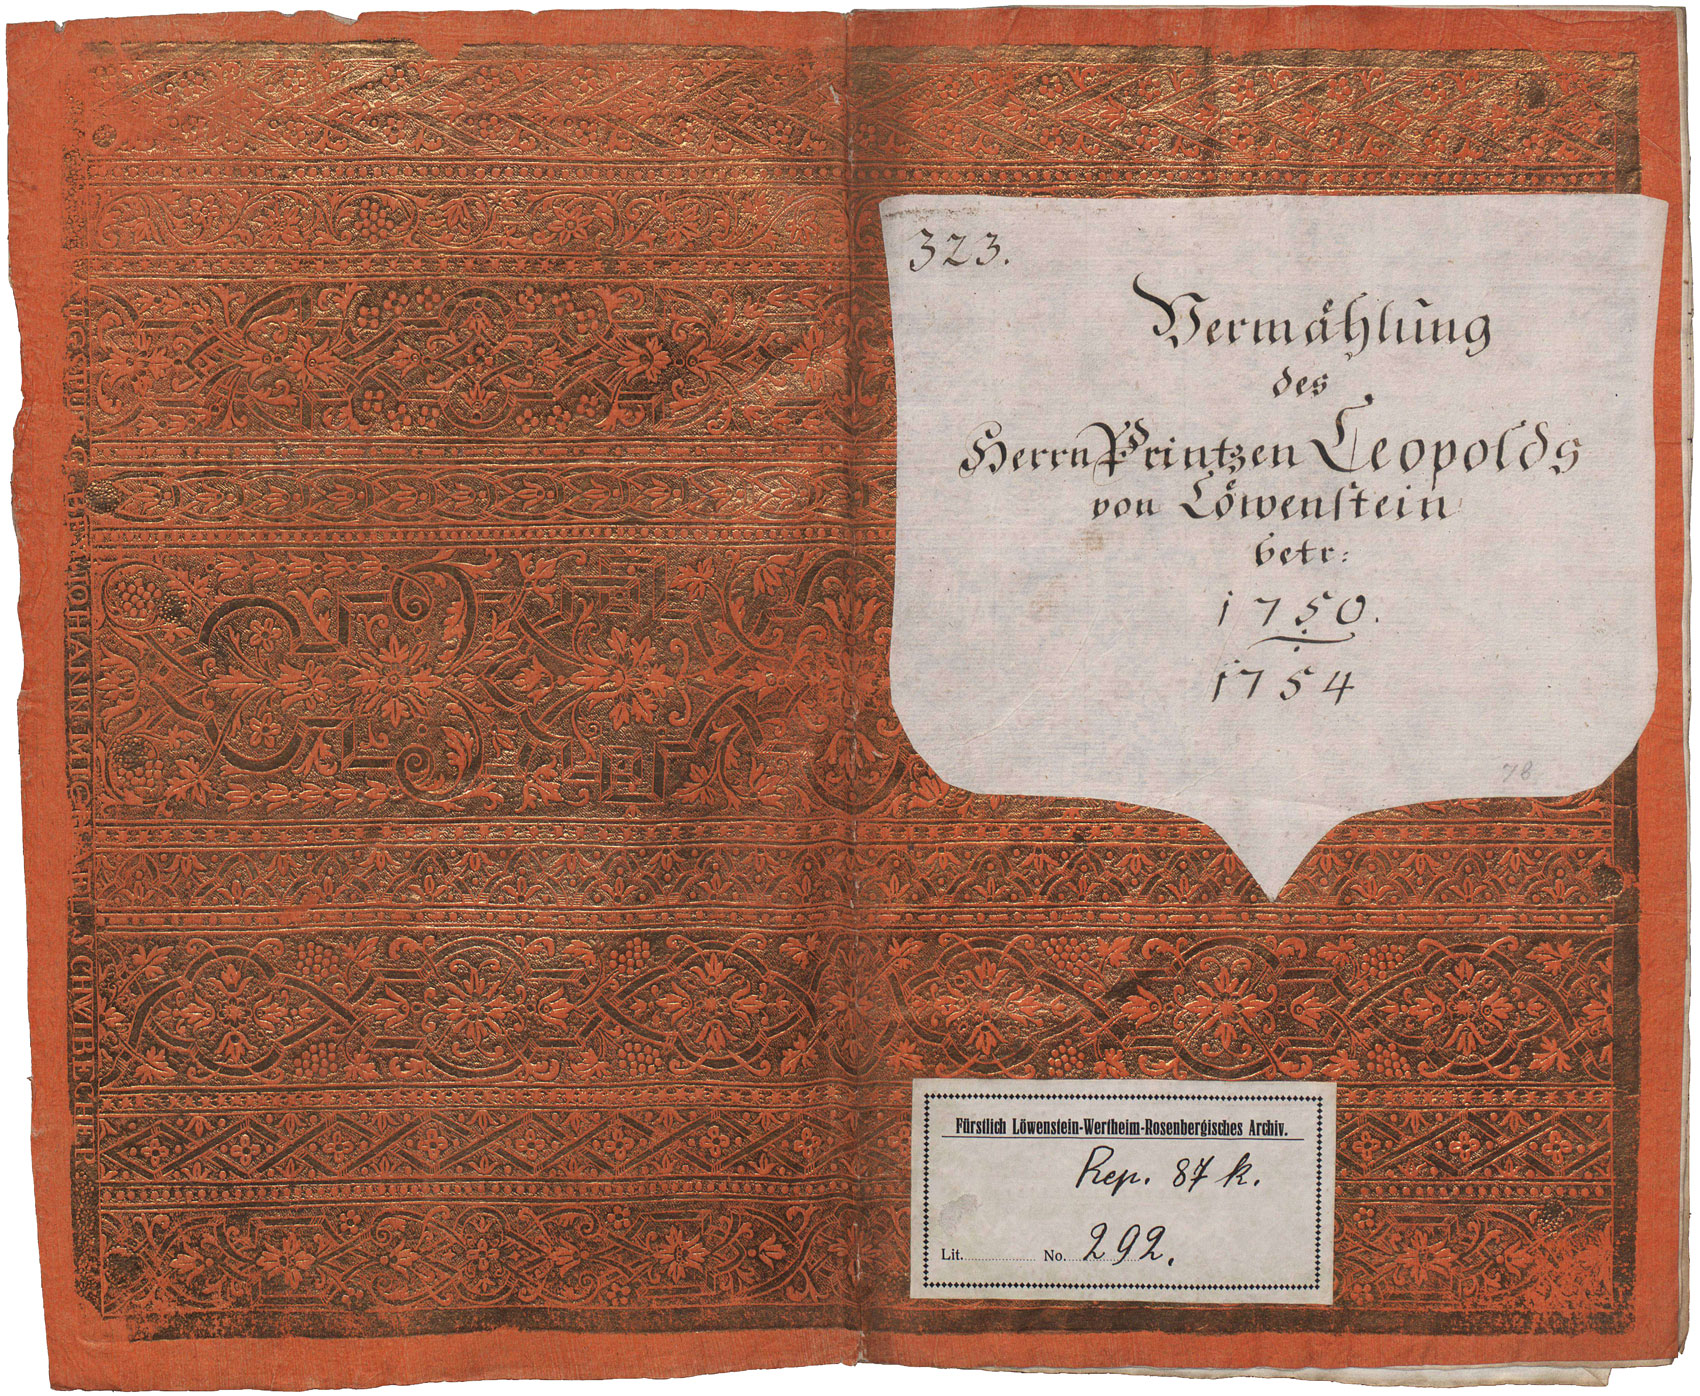 323.
Vermählung
des
Herrn Printzen Leopolds
von Löwenstein
betr:
1750.
1754
78
Fürstlich Löwenstein-Wertheim-Rosenbergisches Archiv.
Rep. 87 k.
Lit. No. 292.
IOHANN MICHAEL SCHVIBECHER